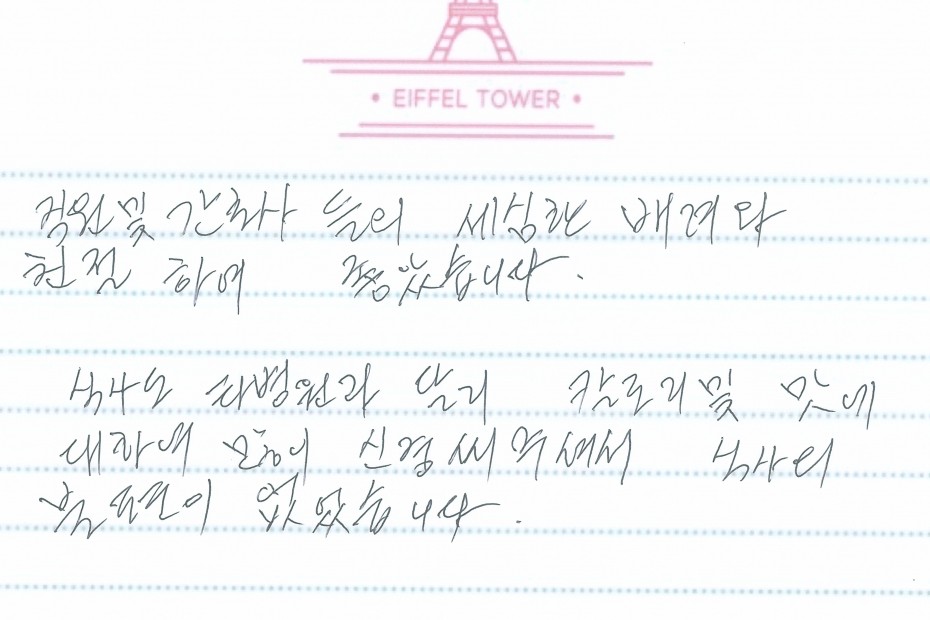 • EIFFEL TOWER •
직원및 간호사 들의 세심한 배려와
친절 하여 좋았습니다.
식사도 타병원과 달리 칼로리및 맛에
대하여 많이 신경써주셔서 식사의
불편이 없었습니다.